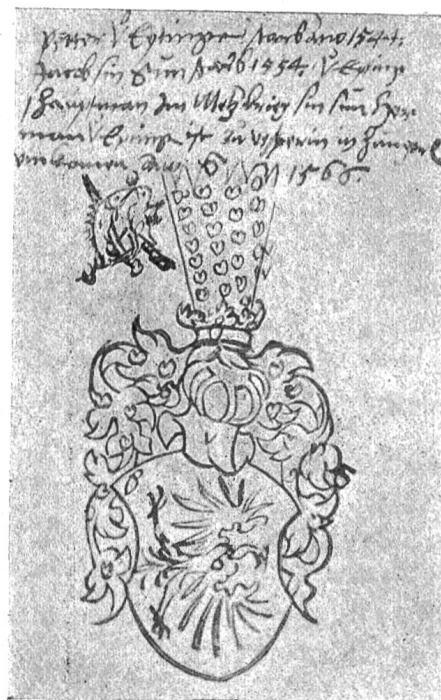 Petter V Eptingen starb ano 1544.
Jacob sin Sun starb 1554. V Epting
haupman Im Metz krieg sin sun Her
man V Epting ist zu in Hunger
umkomen Ano 1566.